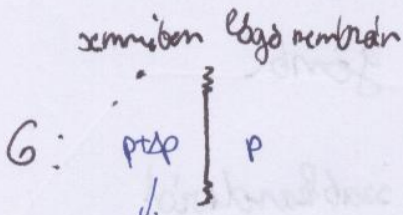 semmiben lógó membrán
G: p+Δp p